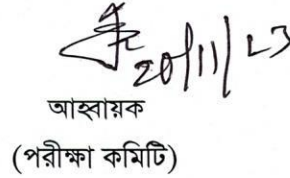 20/11/23
আহ্বায়ক
(পরীক্ষা কমিটি)